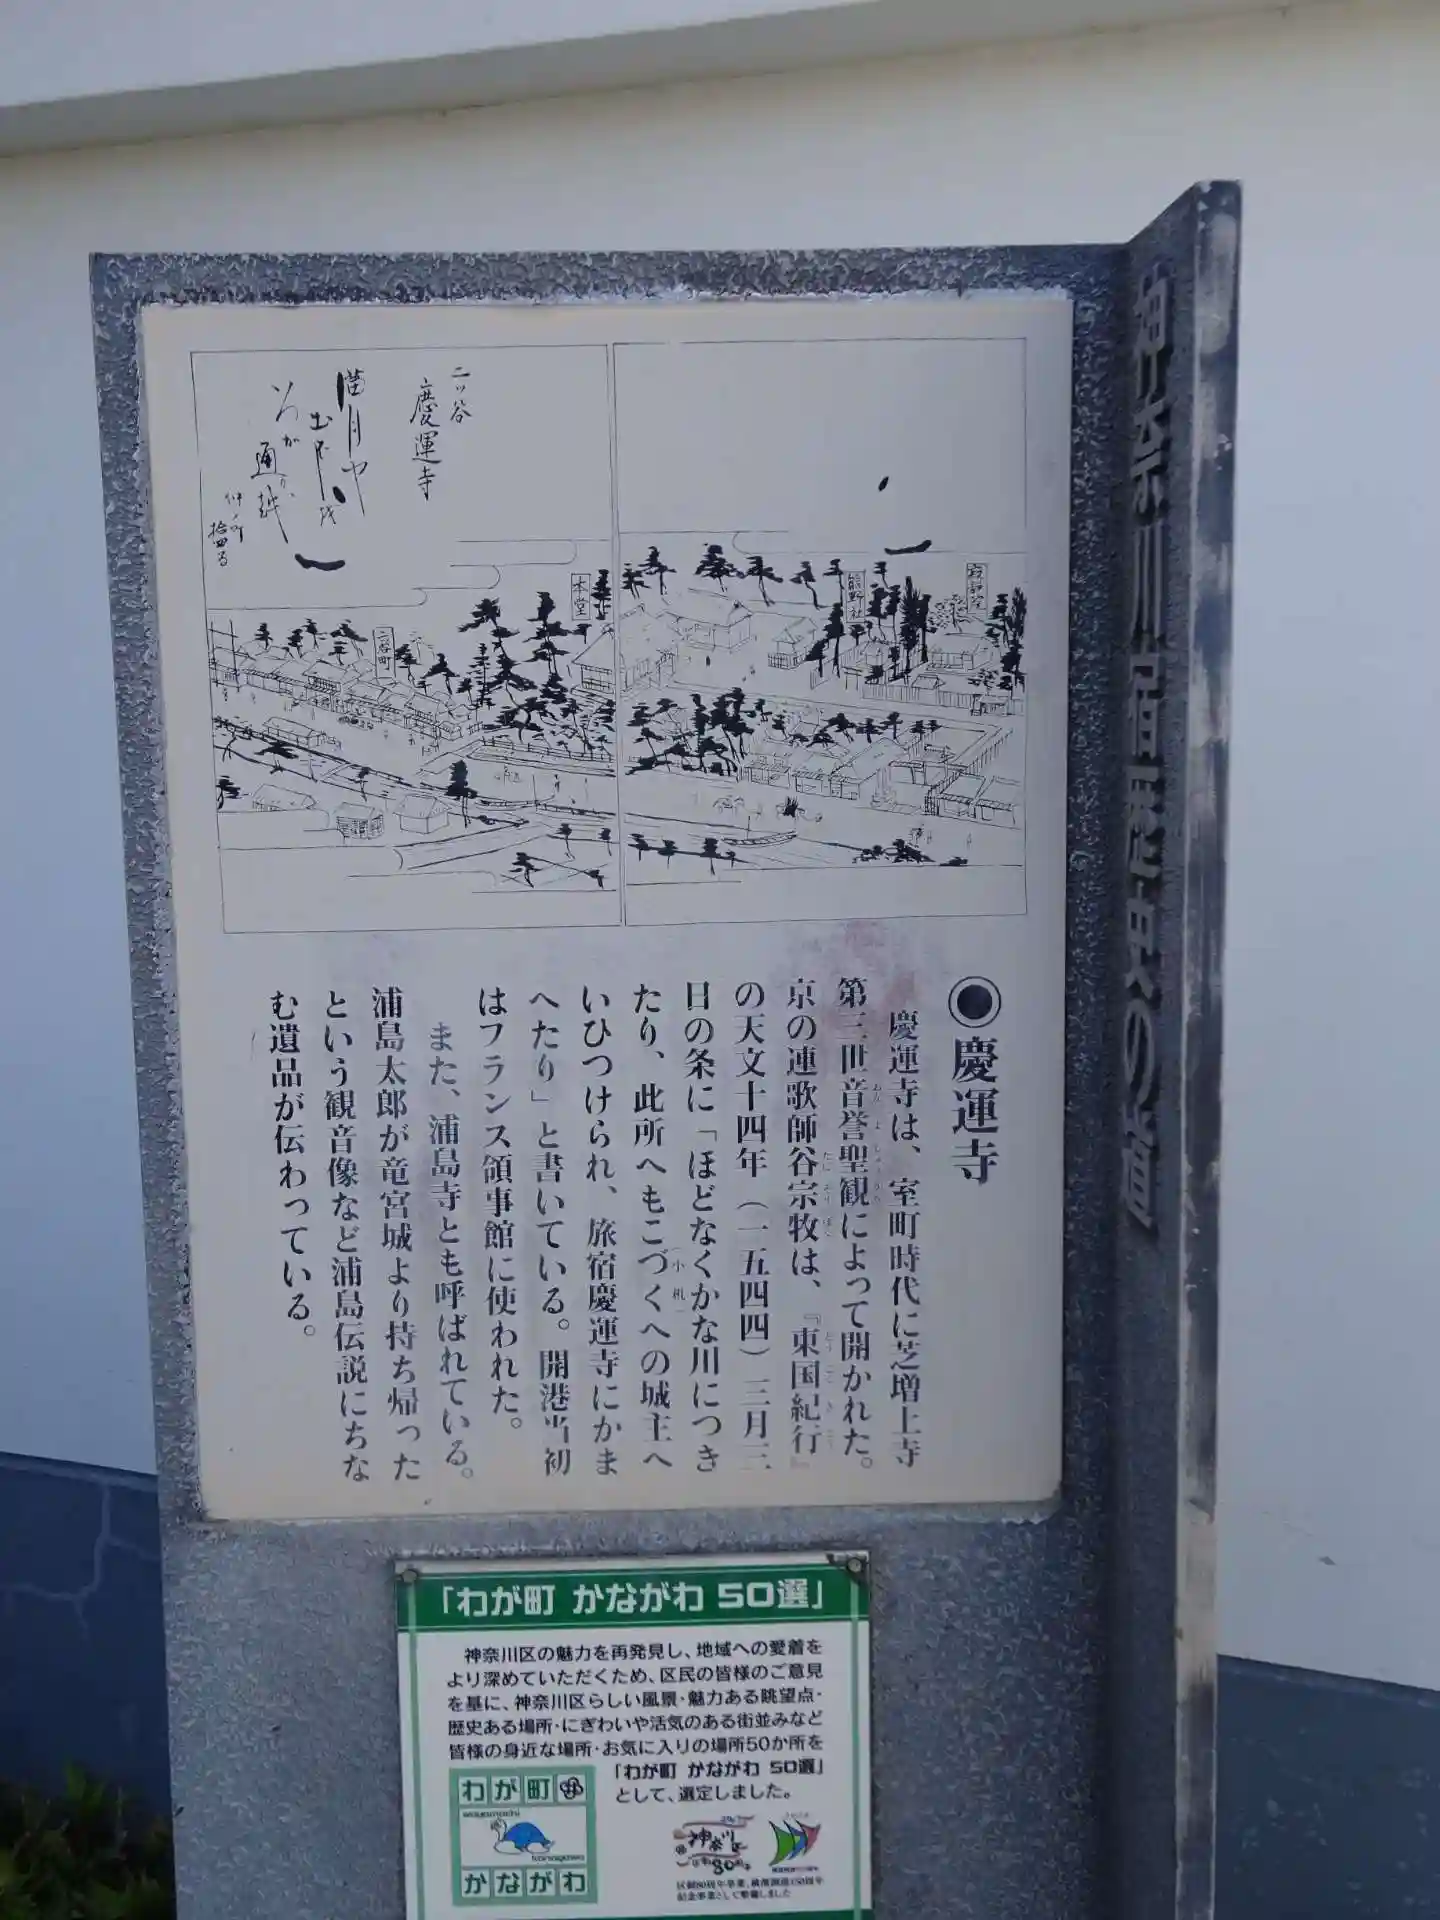 神奈川宿歴史の道
二ッ谷
慶運寺
満月や
通り越
本堂
熊野社
二谷町
◉慶運寺
慶運寺は、室町時代に芝増上寺
第三世音誉聖観によって開かれた。
京の連歌師谷宗牧は、『東国紀行』
の天文十四年（一五四四）三月三
日の条に「ほどなくかな川につき
たり、此所へもこづくへの城主へ
小机
いひつけられ、旅宿慶運寺にかま
へたり」と書いている。開港当初
はフランス領事館に使われた。
また、浦島寺とも呼ばれている。
浦島太郎が竜宮城より持ち帰った
という観音像など浦島伝説にちな
む遺品が伝わっている。
「わが町 かながわ 50選」
神奈川区の魅力を再発見し、地域への愛着を
より深めていただくため、区民の皆様のご意見
を基に、神奈川区らしい風景・魅力ある眺望点・
歴史ある場所・にぎわいや活気のある街並みなど
皆様の身近な場所・お気に入りの場所50か所を
「わが町 かながわ 50選」
として、選定しました。
わが町
wagamachi
kanagawa
かながわ
神奈川区
80